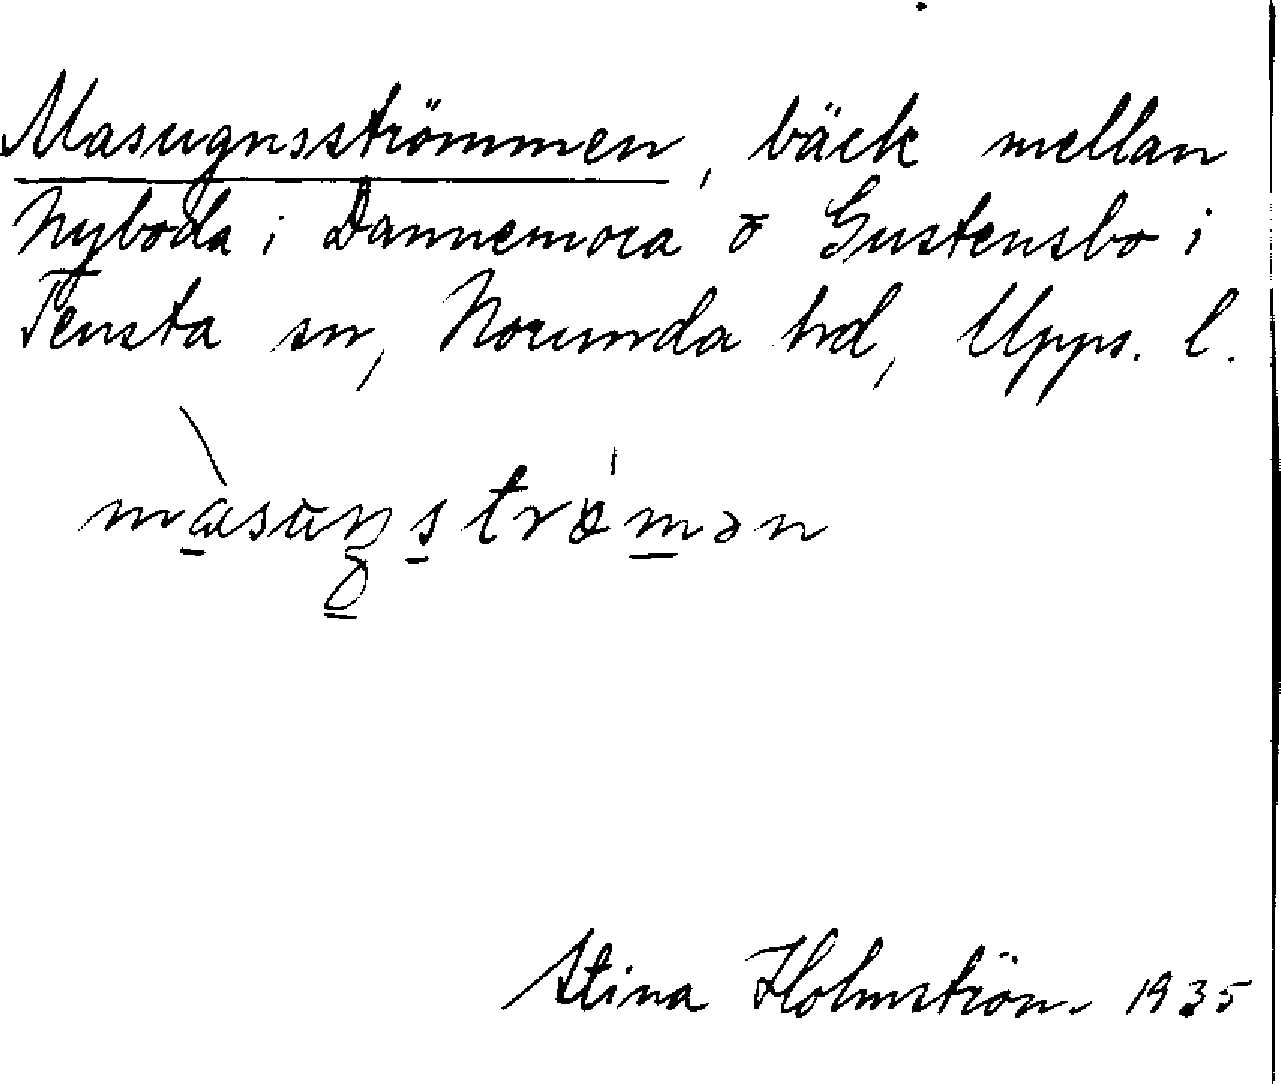 Masugnsströmmen, bäck mellan
Nyboda i Dannemora o Gustensbo i
Tensta sn, Norunda hd, Upps. l.
Stina Holmström 1935